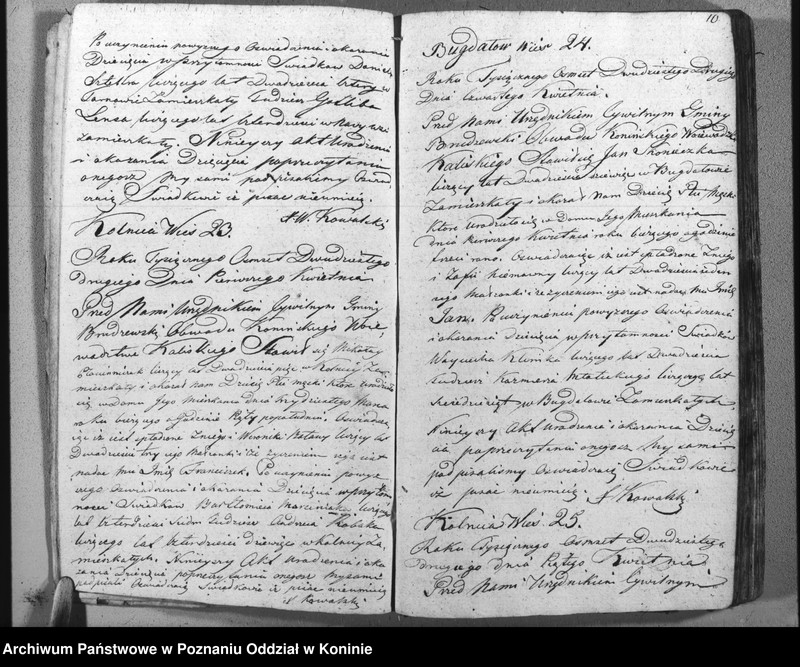 Po uczynieniu powyższego Oświadczenia i okazania
Dziecięcia w przytomności Swiadków Daniela
liczącego lat Dwadzieścia cztery w
zamieszkały Tudzież Gotliba
Lenca liczącego lat
zamieszkały. Ninieyszy Akt Urodzenia
i okazania Dziecięcia poprzeczytaniu
onegosz My sami podpisalismy Oswiad
czaią Swiadkowie iż pisac nieumieią.
Kowalski
Kolnica Wieś 23.
Roku Tysiącznego Osmset Dwudziestego
drugiego Dnia Pierwszego Kwietnia
Przed Nami Urzędnikiem Cywilnym Gminy
Brudzewski Obwodu Konińskiego Woie
wództwa Kaliskiego Stawił się Mikołay
liczący lat Dwadzieścia pięć w Kolnicy Za
mieszkały i okazał nam Dziecię Płci męski które urodziło
się w domu Jego mieszkania dnia trzydziestego Marca
roku bieżącego o godzinie Piąty popołudniu. Oswiadcza
iąc iż iest spłodzone z niego i liczący lat
Dwadzieścia trzy iego Małżonki i iż życzeniem iego iest
nadać mu Imię Franciszek. Po uczynieniu powyż
szego oswiadczenia i okazania Dziecięcia w przytom
ności Swiadków Bartłomieia Marciniaka liczącego
lat Czterdzieści Siedm tudzież Andrzeia
liczącego lat Czterdzieści dziewięć w Kolnicy za
mieszkałych. Ninieyszy Akt urodzenia i oka
zania Dziecięcia poprzeczytaniu onegosz my sami
podpisali Oswiadczaią Swiadkowie iż pisac nieumieią
Kowalski
10
Bugdałow Wieś 24.
Roku Tysiącznego Osmset Dwudziestego Drugiego
Dnia Czwartego Kwietnia.
Przed Nami Urzędnikiem Cywilnym Gminy
Brudzewski Obwodu Konińskiego Woiewodz.
Kaliskiego Stawił się Jan
liczący lat Dwadzieścia dziewięć w Bugdałowie
Zamieszkały i okazał Nam Dziecię Płci Męski
które urodziło się w Domu Jego Mieszkania
dnia pierwszego Kwietnia roku bieżącego o godzinie
trzeci rano. Oswiadczaiąc iż iest spłodzone z niego
i Zofii liczący lat Dwadzieścia ieden
iego Małżonki i iż życzeniem iego iest nadać mu Imię
Jan. Po uczynieniu powyższego Oswiadczenia
i okazania dziecięcia w przytomności Swiadków
Woyciecha Klimka liczącego lat Dwadzieścia
tudzież Kazmierza liczącego lat
w Bugdałowie Zamieszkałych.
Ninieyszy Akt Urodzenia i okazania Dziecię
cia poprzeczytaniu onegosz My sami
podpisalismy Oswiadczaią Swiadkowie
iż pisac nieumieią. Kowalski
Kolnica Wieś 25.
Roku Tysiącznego Osmset Dwudziestego
drugiego dnia Piątego Kwietnia
Przed Nami Urzędnikiem Cywilnym
Archiwum Państwowe w Poznaniu Oddział w Koninie